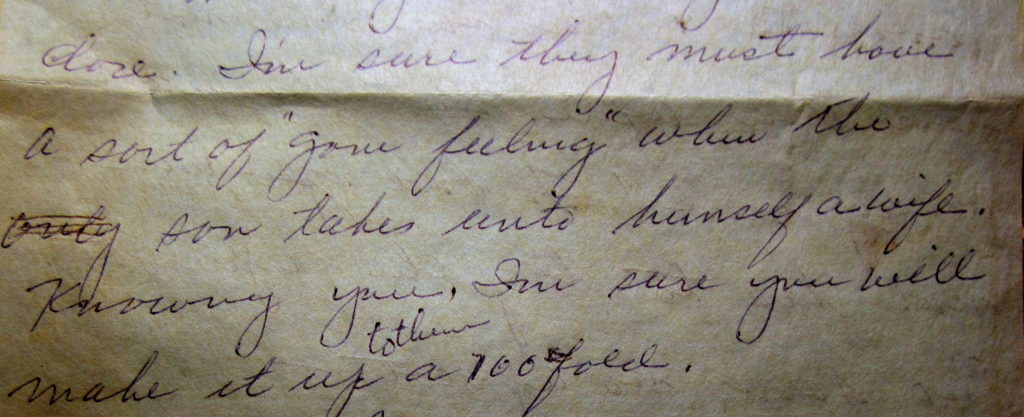 I'm sure they must have
a sort of "gone feeling" when the
only son takes unto himself a wife.
Knowing you, I'm sure you will
to them
make it up a 100 fold.